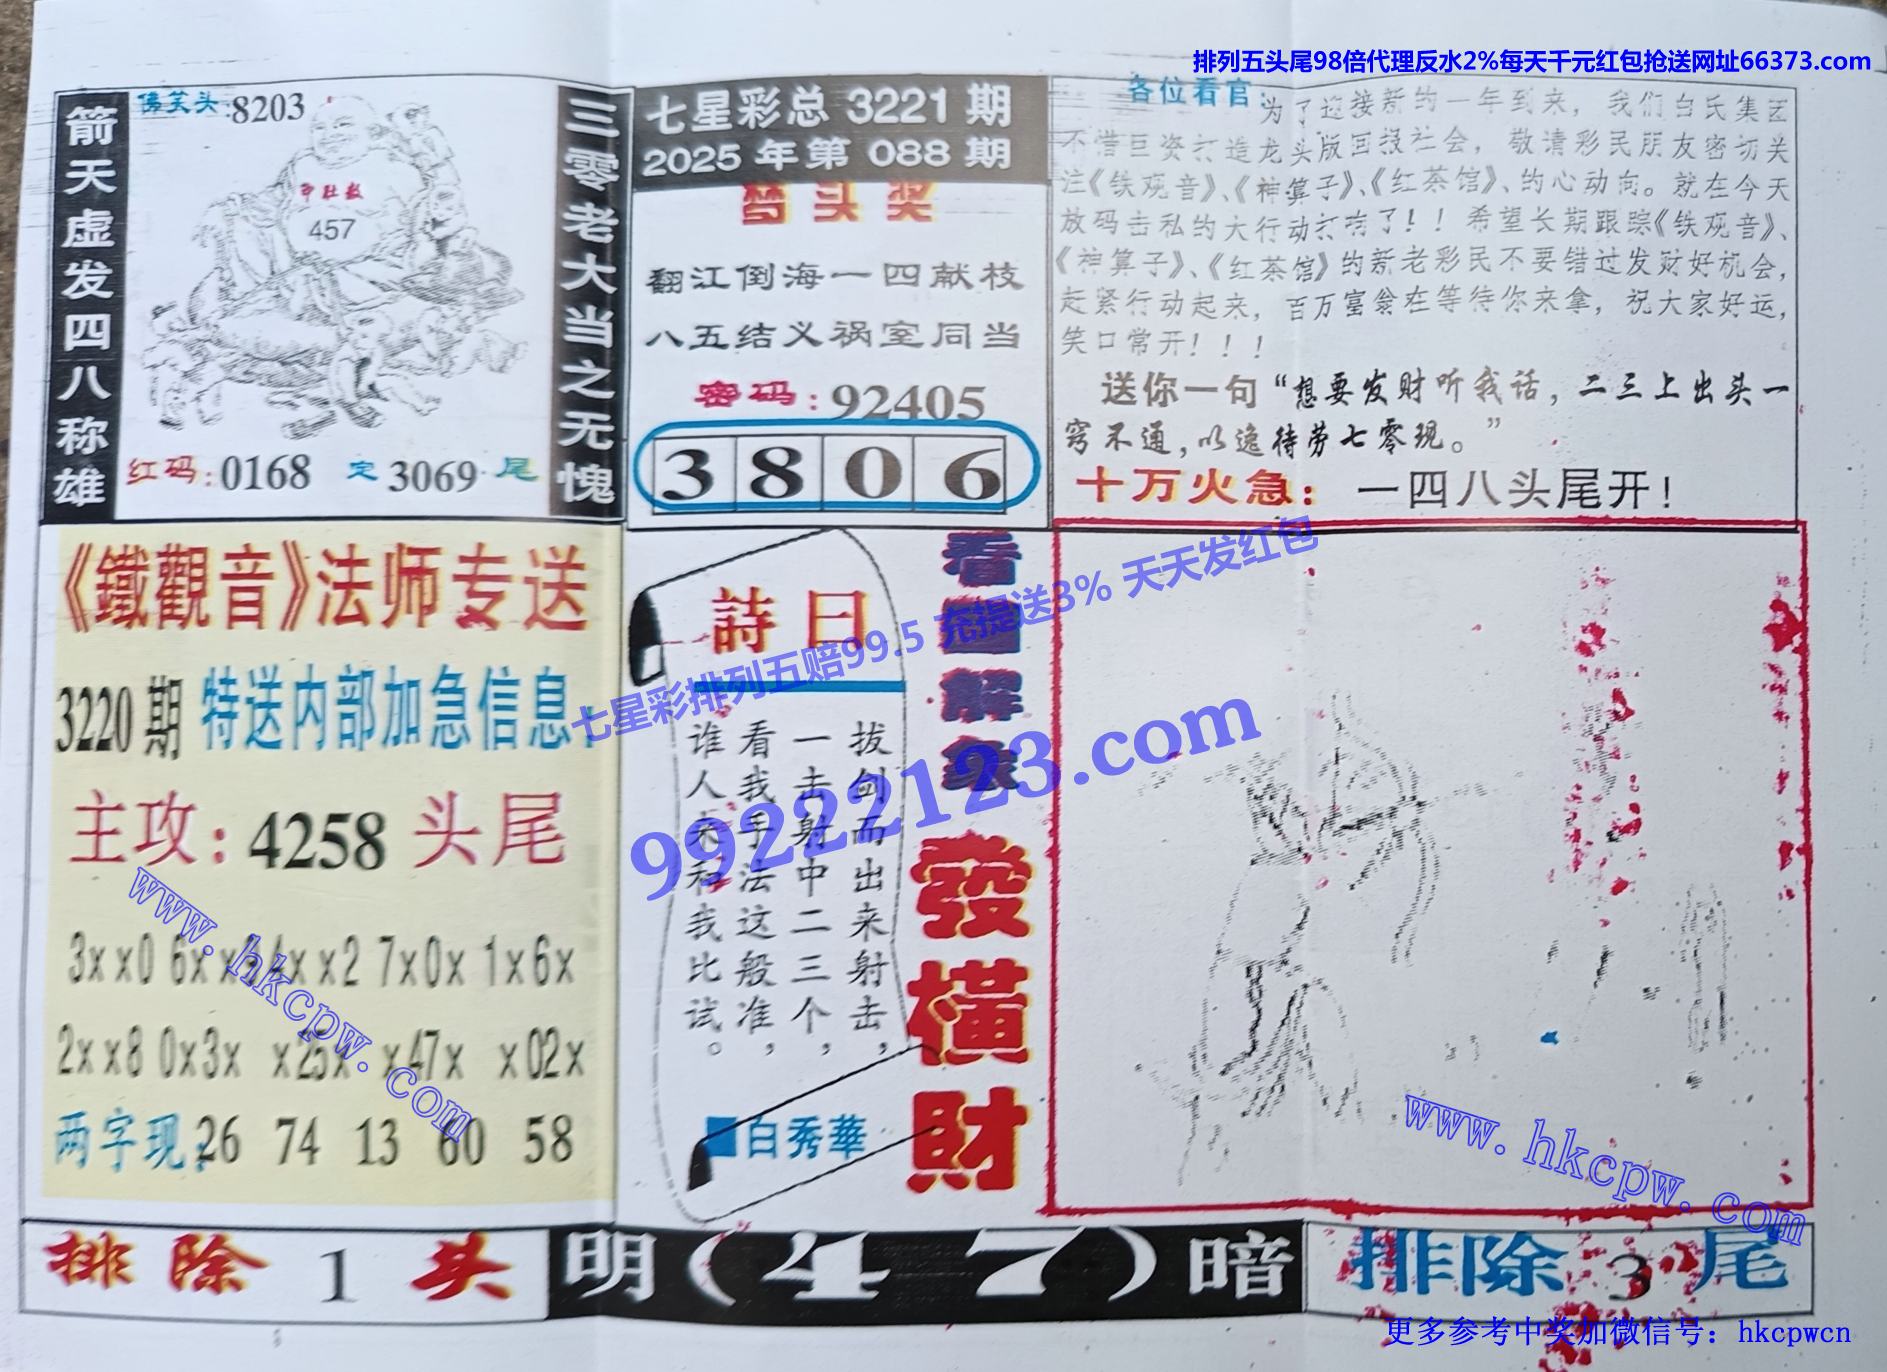 排列五头尾98倍代理反水2%每天千元红包抢送网址66373.com
箭天虚发四八称雄
佛笑头:8203
中肚数
457
红码:0168 定3069.尾
三零老大当之无愧
七星彩总 3221 期
2025 年第 088 期
梦头奖
翻江倒海一四献枝
八五结义祸室同当
密码:92405
3 8 0 6
各位看官:为了迎接新的一年到来，我们白氏集团
不惜巨资打造龙头版回报社会，敬请彩民朋友密切关
注《铁观音》、《神算子》、《红茶馆》、的心动向。就在今天
放码击私的大行动打响了！！希望长期跟踪《铁观音》、
《神算子》、《红茶馆》的新老彩民不要错过发财好机会，
赶紧行动起来，百万富翁在等待你来拿，祝大家好运，
笑口常开！！！
送你一句“想要发财听我话，二三上出头一
窍不通，以逸待劳七零现。”
十万火急：一四八头尾开！
《鐵觀音》法师专送
3220 期 特送内部加急信息
主攻: 4258 头尾
3xx0 6x x4xx2 7x0x 1x6x
2xx8 0x3x x25x x47x x02x
两字现:26 74 13 60 58
詩曰
拔剑而出来射击，
一击射中二三个，
看我手法这般准，
谁人未和我比试。
白秀華
看圖解象
發橫財
七星彩排列五赔99.5 充提送3% 天天发红包
99222123.com
www.hkcpw.com
www.hkcpw.com
排除 1 头
明(47)暗
排除 3 尾
更多参考中奖加微信号：hkcpwcn